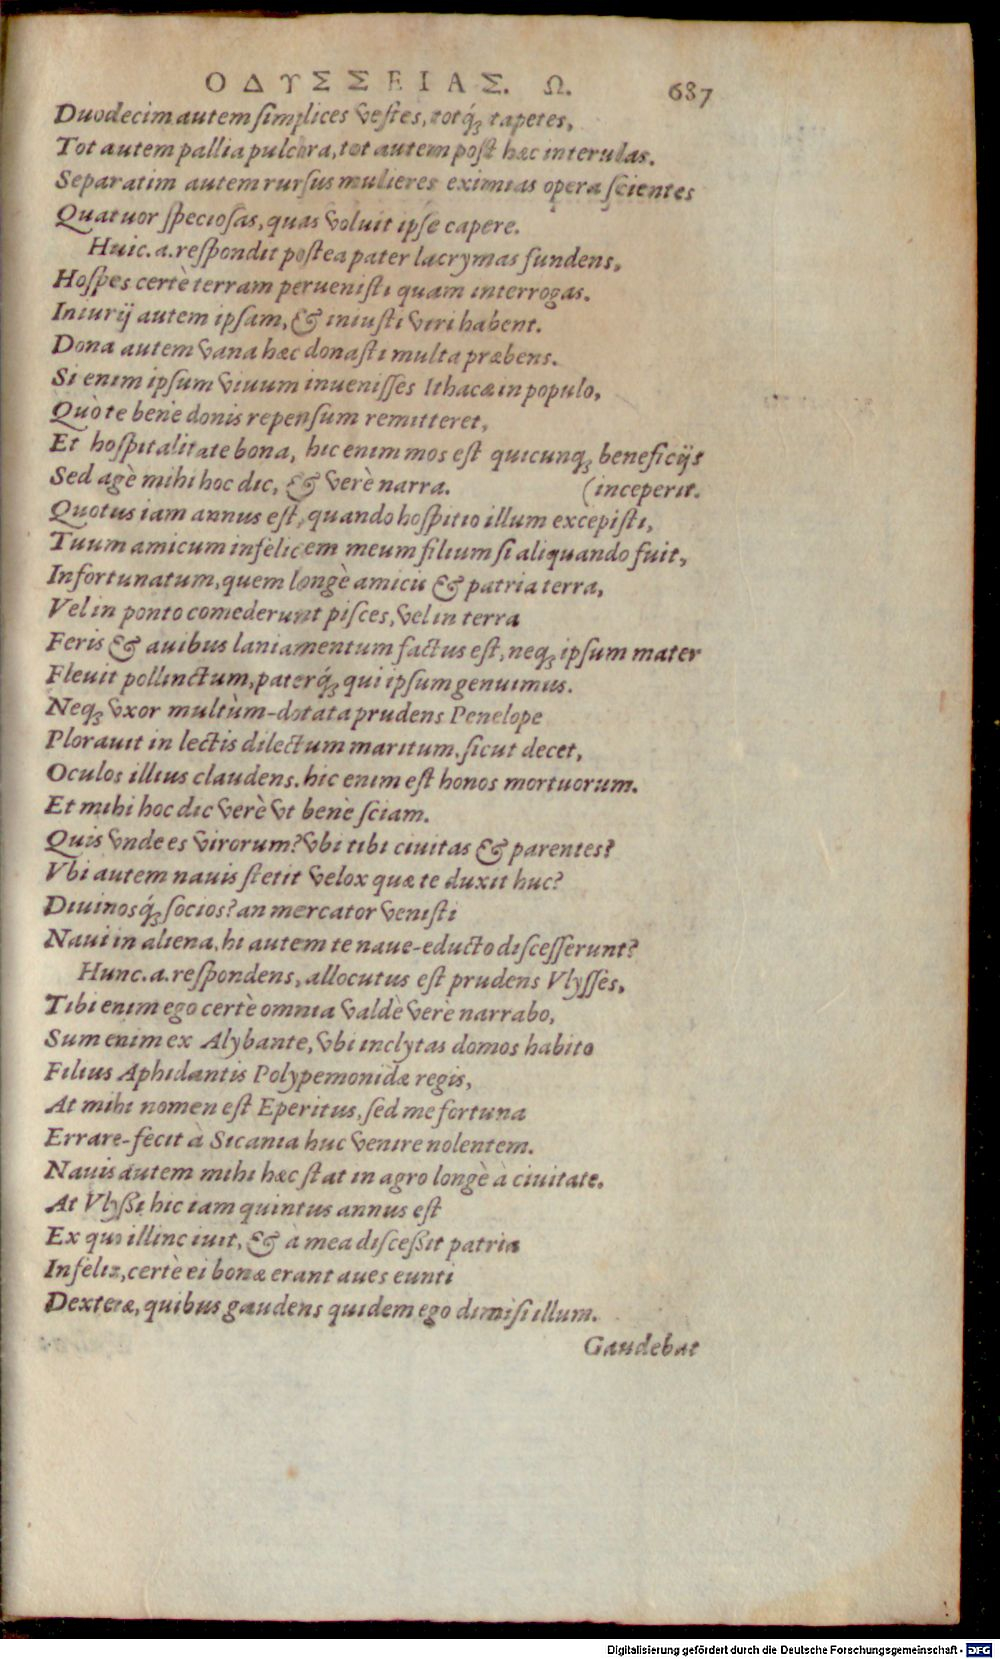 ΟΔΥΣΣΕΙΑΣ. Ω. 687
Duodecim autem simplices vestes, totq́; tapetes,
Tot autem pallia pulchra, tot autem post hæc interulas.
Separatim autem rursus mulieres eximias opera scientes
Quatuor speciosas, quas voluit ipse capere.
Huic .a. respondit postea pater lacrymas fundens,
Hospes certè terram peruenisti quam interrogas.
Iniurij autem ipsam, & iniusti viri habent.
Dona autem vana hæc donasti multa præbens.
Si enim ipsum viuum inuenisses Ithacæ in populo,
Quò te benè donis repensum remitteret,
Et hospitalitate bona, hic enim mos est quicunq; beneficijs
Sed agè mihi hoc dic, & verè narra. (inceperit.
Quotus iam annus est, quando hospitio illum excepisti,
Tuum amicum infelicem meum filium si aliquando fuit,
Infortunatum, quem longè amicis & patria terra,
Vel in ponto comederunt pisces, vel in terra
Feris & auibus laniamentum factus est, neq; ipsum mater
Fleuit pollinctum, paterq́; qui ipsum genuimus.
Neq; vxor multùm-dotata prudens Penelope
Plorauit in lectis dilectum maritum, sicut decet,
Oculos illius claudens. hic enim est honos mortuorum.
Et mihi hoc dic verè vt benè sciam.
Quis vnde es virorum? vbi tibi ciuitas & parentes?
Vbi autem nauis stetit velox quæ te duxit huc?
Diuinosq́; socios? an mercator venisti
Naui in aliena, hi autem te naue-educto discesserunt?
Hunc .a. respondens, allocutus est prudens Vlysses,
Tibi enim ego certè omnia valdè verè narrabo,
Sum enim ex Alybante, vbi inclytas domos habito
Filius Aphidantis Polypemonidæ regis,
At mihi nomen est Eperitus, sed me fortuna
Errare-fecit à Sicania huc venire nolentem.
Nauis autem mihi hæc stat in agro longè à ciuitate.
At Vlyßi hic iam quintus annus est
Ex quo illinc iuit, & à mea disceßit patria
Infelix, certè ei bonæ erant aues eunti
Dexteræ, quibus gaudens quidem ego dimisi illum.
Gaudebat
Digitalisierung gefördert durch die Deutsche Forschungsgemeinschaft - DFG